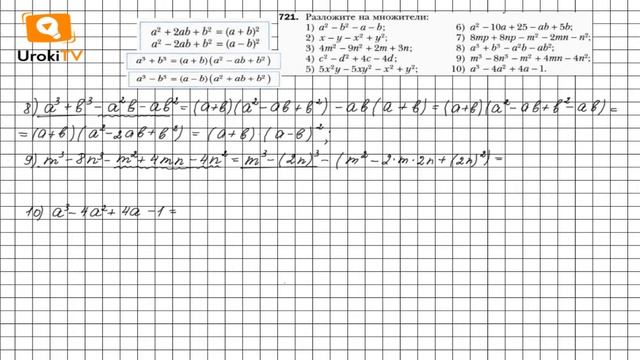 UrokiTV
a² + 2ab + b² = (a + b)²
a² − 2ab + b² = (a − b)²
a³ + b³ = (a + b)(a² − ab + b²)
a³ − b³ = (a − b)(a² + ab + b²)
721. Разложите на множители:
1) a² − b² − a − b;
2) x − y − x² + y²;
3) 4m² − 9n² + 2m + 3n;
4) c² − d² + 4c − 4d;
5) 5x²y − 5xy² − x² + y²;
6) a² − 10a + 25 − ab + 5b;
7) 8mp + 8np − m² − 2mn − n²;
8) a³ + b³ − a²b − ab²;
9) m³ − 8n³ − m² + 4mn − 4n²;
10) a³ − 4a² + 4a − 1.
8) a³ + в³ − a²в − aв² = (a+в)(a² − aв + в²) − aв(a + в) = (a+в)(a² − aв + в² − aв) =
= (a+в)(a² − 2aв + в²) = (a+в)·(a−в)²;
9) m³ − 8n³ − m² + 4mn − 4n² = m³ − (2n)³ − (m² − 2·m·2n + (2n)²) =
10) a³ − 4a² + 4a − 1 =